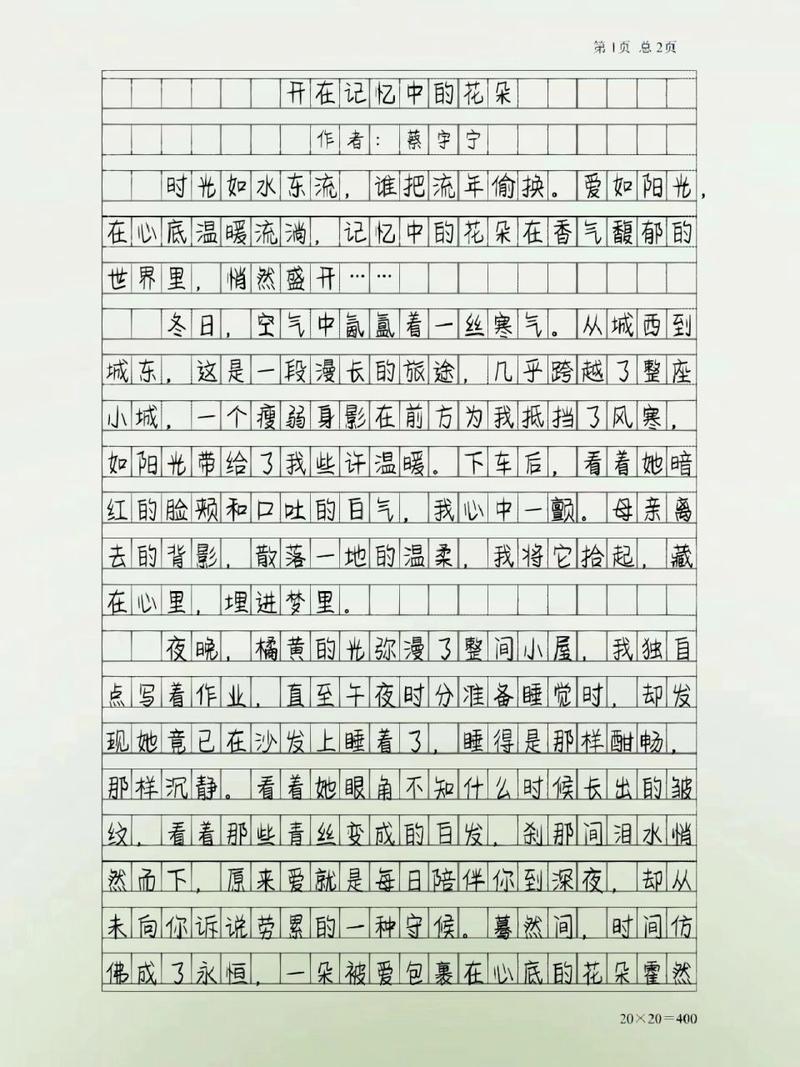 第1页 总2页
开在记忆中的花朵
作者：蔡宇宁
时光如水东流，谁把流年偷换。爱如阳光，
在心底温暖流淌，记忆中的花朵在香气馥郁的
世界里，悄然盛开……
冬日，空气中氤氲着一丝寒气。从城西到
城东，这是一段漫长的旅途，几乎跨越了整座
小城，一个瘦弱身影在前方为我抵挡了风寒，
如阳光带给了我些许温暖。下车后，看着她暗
红的脸颊和口吐的白气，我心中一颤。母亲离
去的背影，散落一地的温柔，我将它拾起，藏
在心里，埋进梦里。
夜晚，橘黄的光弥漫了整间小屋，我独自
点写着作业，直至午夜时分准备睡觉时，却发
现她竟已在沙发上睡着了，睡得是那样酣畅，
那样沉静。看着她眼角不知什么时候长出的皱
纹，看着那些青丝变成的白发，刹那间泪水悄
然而下，原来爱就是每日陪伴你到深夜，却从
未向你诉说劳累的一种守候。蓦然间，时间仿
佛成了永恒，一朵被爱包裹在心底的花朵霍然
20×20=400